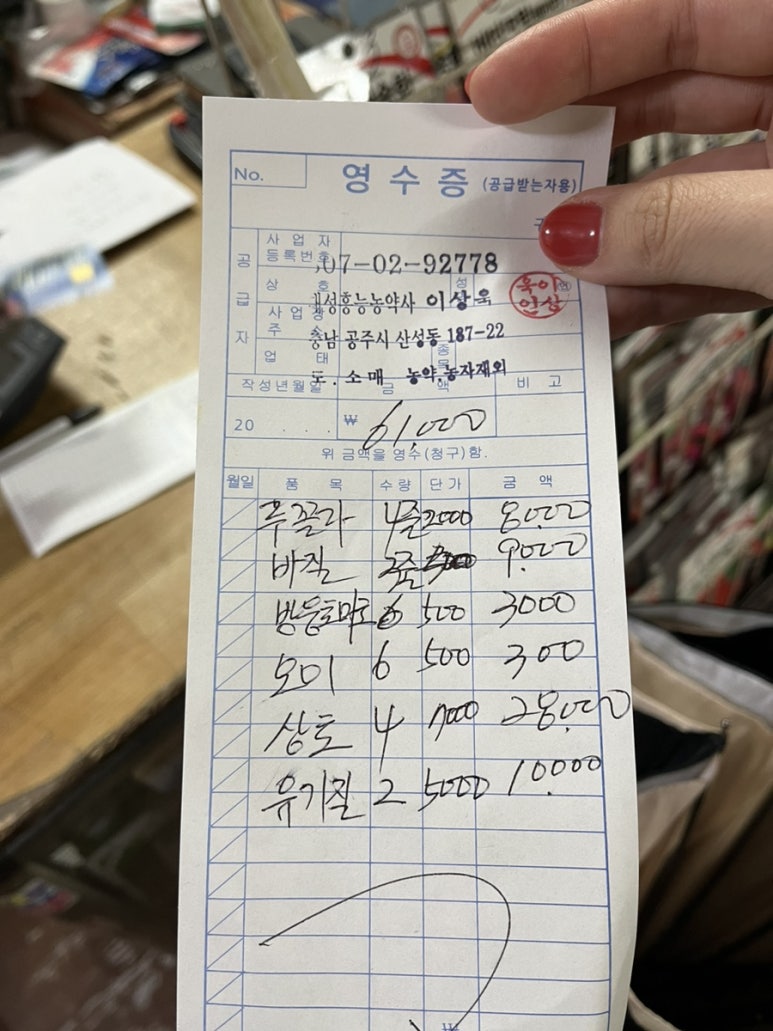 No. 영수증 (공급받는자용)
공급자
사업자등록번호 07-02-92778
상호 성흥능농약사 성 이상욱
사업장주소 충남 공주시 산성동 187-22
업태 도.소매 종목 농약.농자재외
작성년월일 금액 비고
20 . . . ₩ 61,000
위 금액을 영수(청구)함.
월일 품목 수량 단가 금액
루꼴라 4줄 2000 8000
바질 9000
방울토마토 6 500 3000
오이 6 500 300
상토 4 7000 28,000
유기질 2 5000 10,000
₩